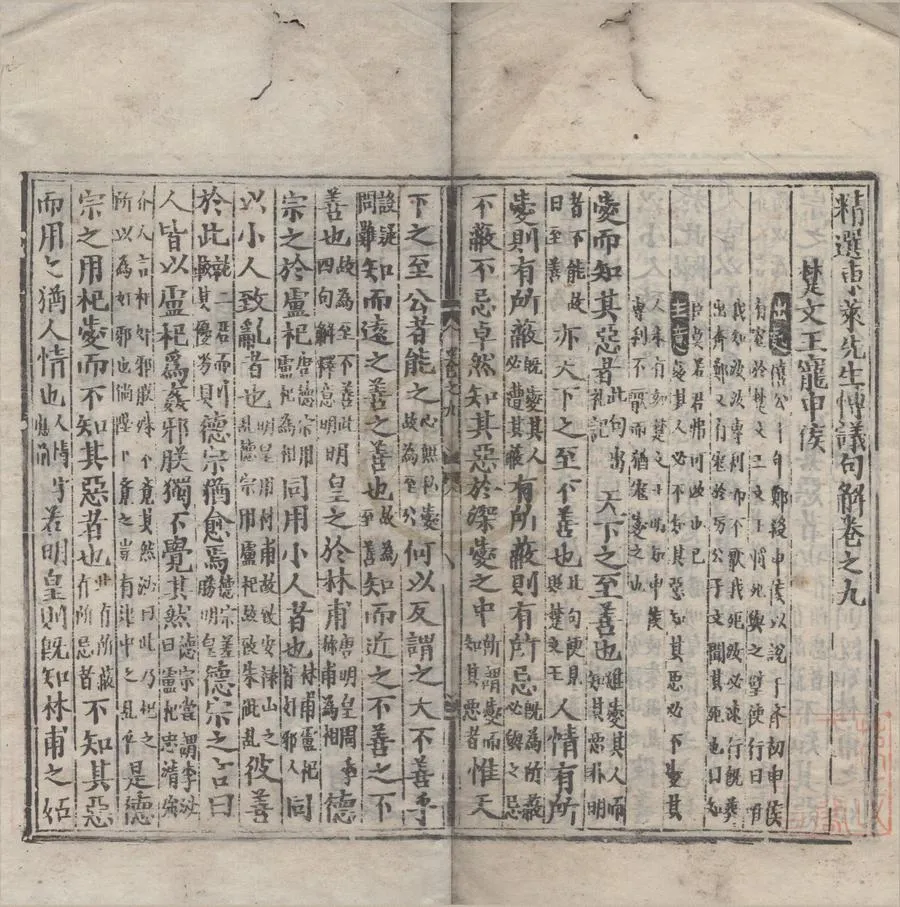 精選東萊先生愽議句解卷之九
楚文王寵申侯
出處僖公七年鄭殺申侯以說于齊初申侯
有寵於楚文王文王將死與之璧使行曰唯
我知汝汝專利而不厭我死汝必速行既葬
出奔鄭又有寵於厲公子文聞其死也曰知
臣莫若君弗可改也已
主意愛其人必不知其惡知其惡必不愛其
人未有如楚文王明知申侯
專利不厭而猶寵愛之也
愛而知其惡者此句出禮記天下之至善也雖愛其人而知其惡非明
者不能故曰至善亦天下之至不善也此句便見與楚文王人情有所
愛則有所蔽既愛其人必遭其蔽有所蔽則有所忌既為所蔽必與之忌
不蔽不忌卓然知其惡於深愛之中所謂愛而知其惡者惟天
卷之九
下之至公者能之心無私愛故為至公何以反謂之大不善乎
設疑問難知而遠之善之善也故為至善知而近之不善之不
善也故為至不善此四句解釋意明明皇之於林甫唐明皇用李林甫為相德
宗之於盧杞唐德宗用盧杞為相同用小人者也林甫盧杞皆奸邪人同
以小人致亂者也明皇用林甫故致安祿山之亂德宗用盧杞故致朱泚亂彼善
於此就二君而較其優劣則德宗猶愈焉德宗差勝明皇德宗之言曰
人皆以盧杞爲姦邪朕獨不覺其然德宗嘗謂李泌曰盧杞忠清強
介人言杞奸邪朕殊不覺其然泌曰此乃杞之所以為奸邪也倘陛下覺之豈有建中之亂乎是德
宗之用杞愛而不知其惡者也此有所蔽有所忌者不知其惡
而用之猶人情也人情應爾若明皇則既知林甫之妬